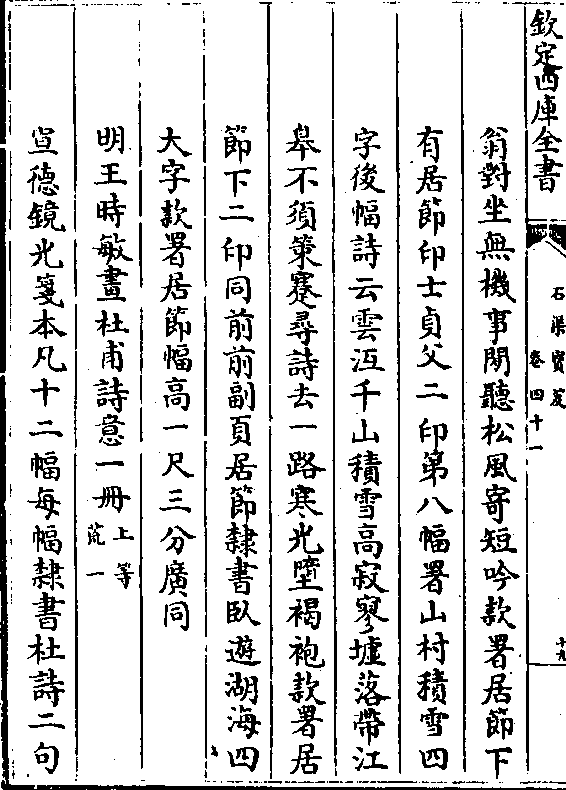 欽定四庫全書
石渠寶笈
卷四十一
十九
翁對坐無機事閒聽松風寄短吟款署居節下
有居節印士貞父二印第八幅署山村積雪四
字後幅詩云雲沍千山積雪高寂寥墟落帶江
皋不須策蹇尋詩去一路寒光墮褐袍款署居
節下二印同前前副頁居節隸書卧遊湖海四
大字款署居節幅高一尺三分廣同
明王時敏畫杜甫詩意一冊上等
荒一
宣德鏡光箋本凡十二幅每幅隸書杜詩二句